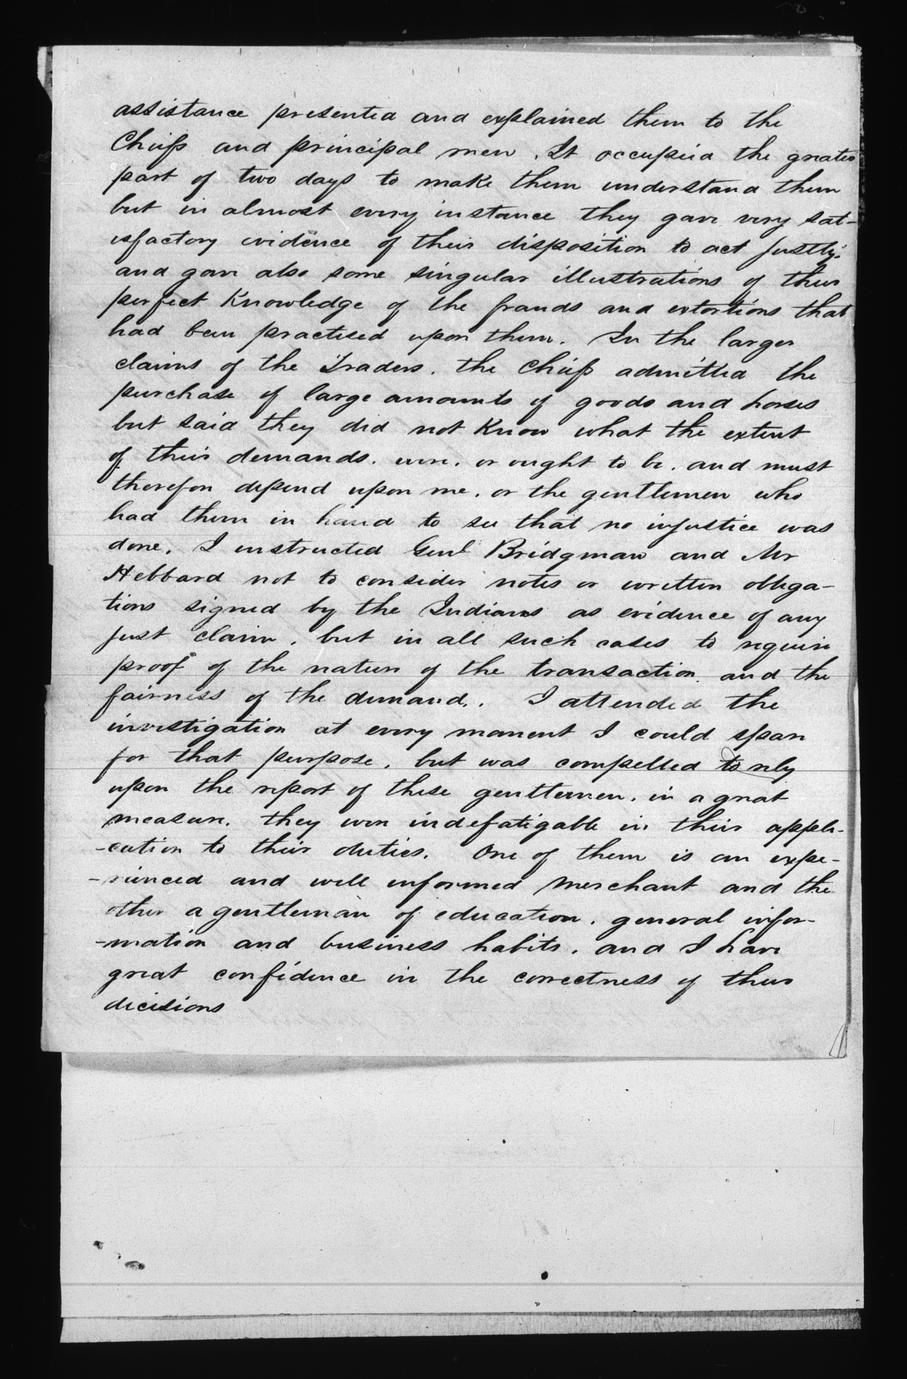 assistance presented and explained them to the
Chiefs and principal men. It occupied the greater
part of two days to make them understand them
but in almost every instance they gave very sat-
isfactory evidence of their disposition to act justly.
and gave also some singular illustrations of their
perfect Knowledge of the frauds and extortions that
had been practised upon them. In the larger
claims of the Traders. the Chiefs admitted the
purchase of large amounts of goods and horses
but said they did not Know what the extent
of their demands. were. or ought to be. and must
therefore depend upon me. or the gentlemen who
had them in hand to see that no injustice was
done. I instructed Genl Bridgman and Mr
Hebbard not to consider notes or written obliga-
tions signed by the Indians as evidence of any
just claim. but in all such cases to require
proof of the nature of the transaction. and the
fairness of the demand.. I attended the
investigation at every moment I could spare
for that purpose. but was compelled to rely
upon the report of these gentlemen. in a great
measure. they were indefatigable in their appli-
-cation to their duties. One of them is an expe-
-rienced and well informed merchant and the
other a gentleman of education. general infor-
-mation and business habits. and I have
great confidence in the correctness of their
decisions